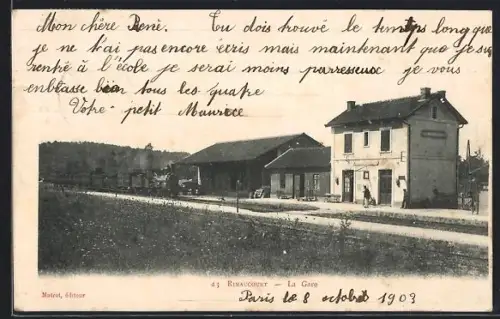 Mon chère René. Tu dois trouvé le temps long que
je ne t'ai pas encore écris mais maintenant que je suis
rentré à l'école je serai moins parresseux je vous
enbtasse bien tous les quatre
Votre petit Maurice
43 RIMAUCOURT — La Gare
Matrot, éditeur
Paris le 8 octobre 1903